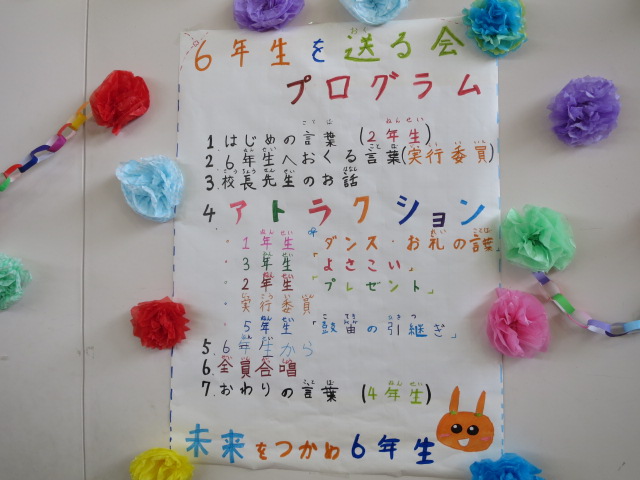 6年生を送る会
プログラム
1 はじめの言葉 (2年生)
2. 6年生へおくる言葉(実行委員)
3. 校長先生のお話
4 アトラクション
・1年生「ダンス・お礼の言葉」
・3年生「よさこい」
・2年生「プレゼント」
・実行委員
・5年生「鼓笛の引継ぎ」
5. 6年生から
6. 全員合唱
7. おわりの言葉 (4年生)
未来をつかめ6年生